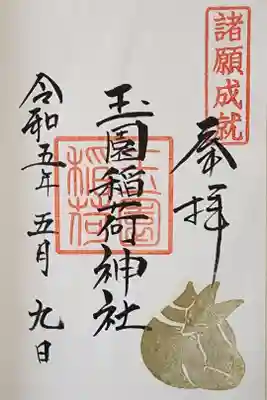 諸願成就
奉拝
玉園稲荷神社
玉園稲荷
令和五年五月九日